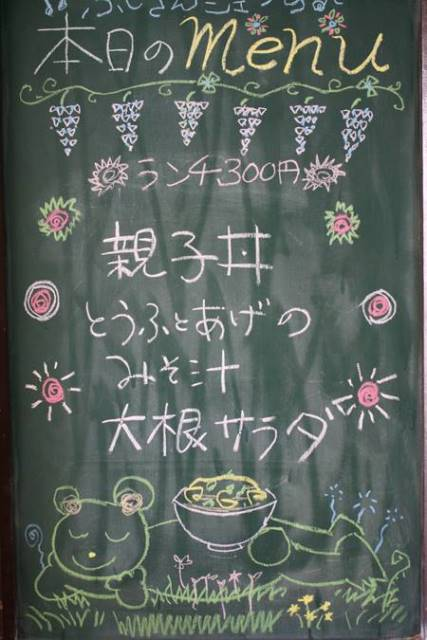 本日のMenu
ランチ300円
親子丼
とうふとあげの
みそ汁
大根サラダ